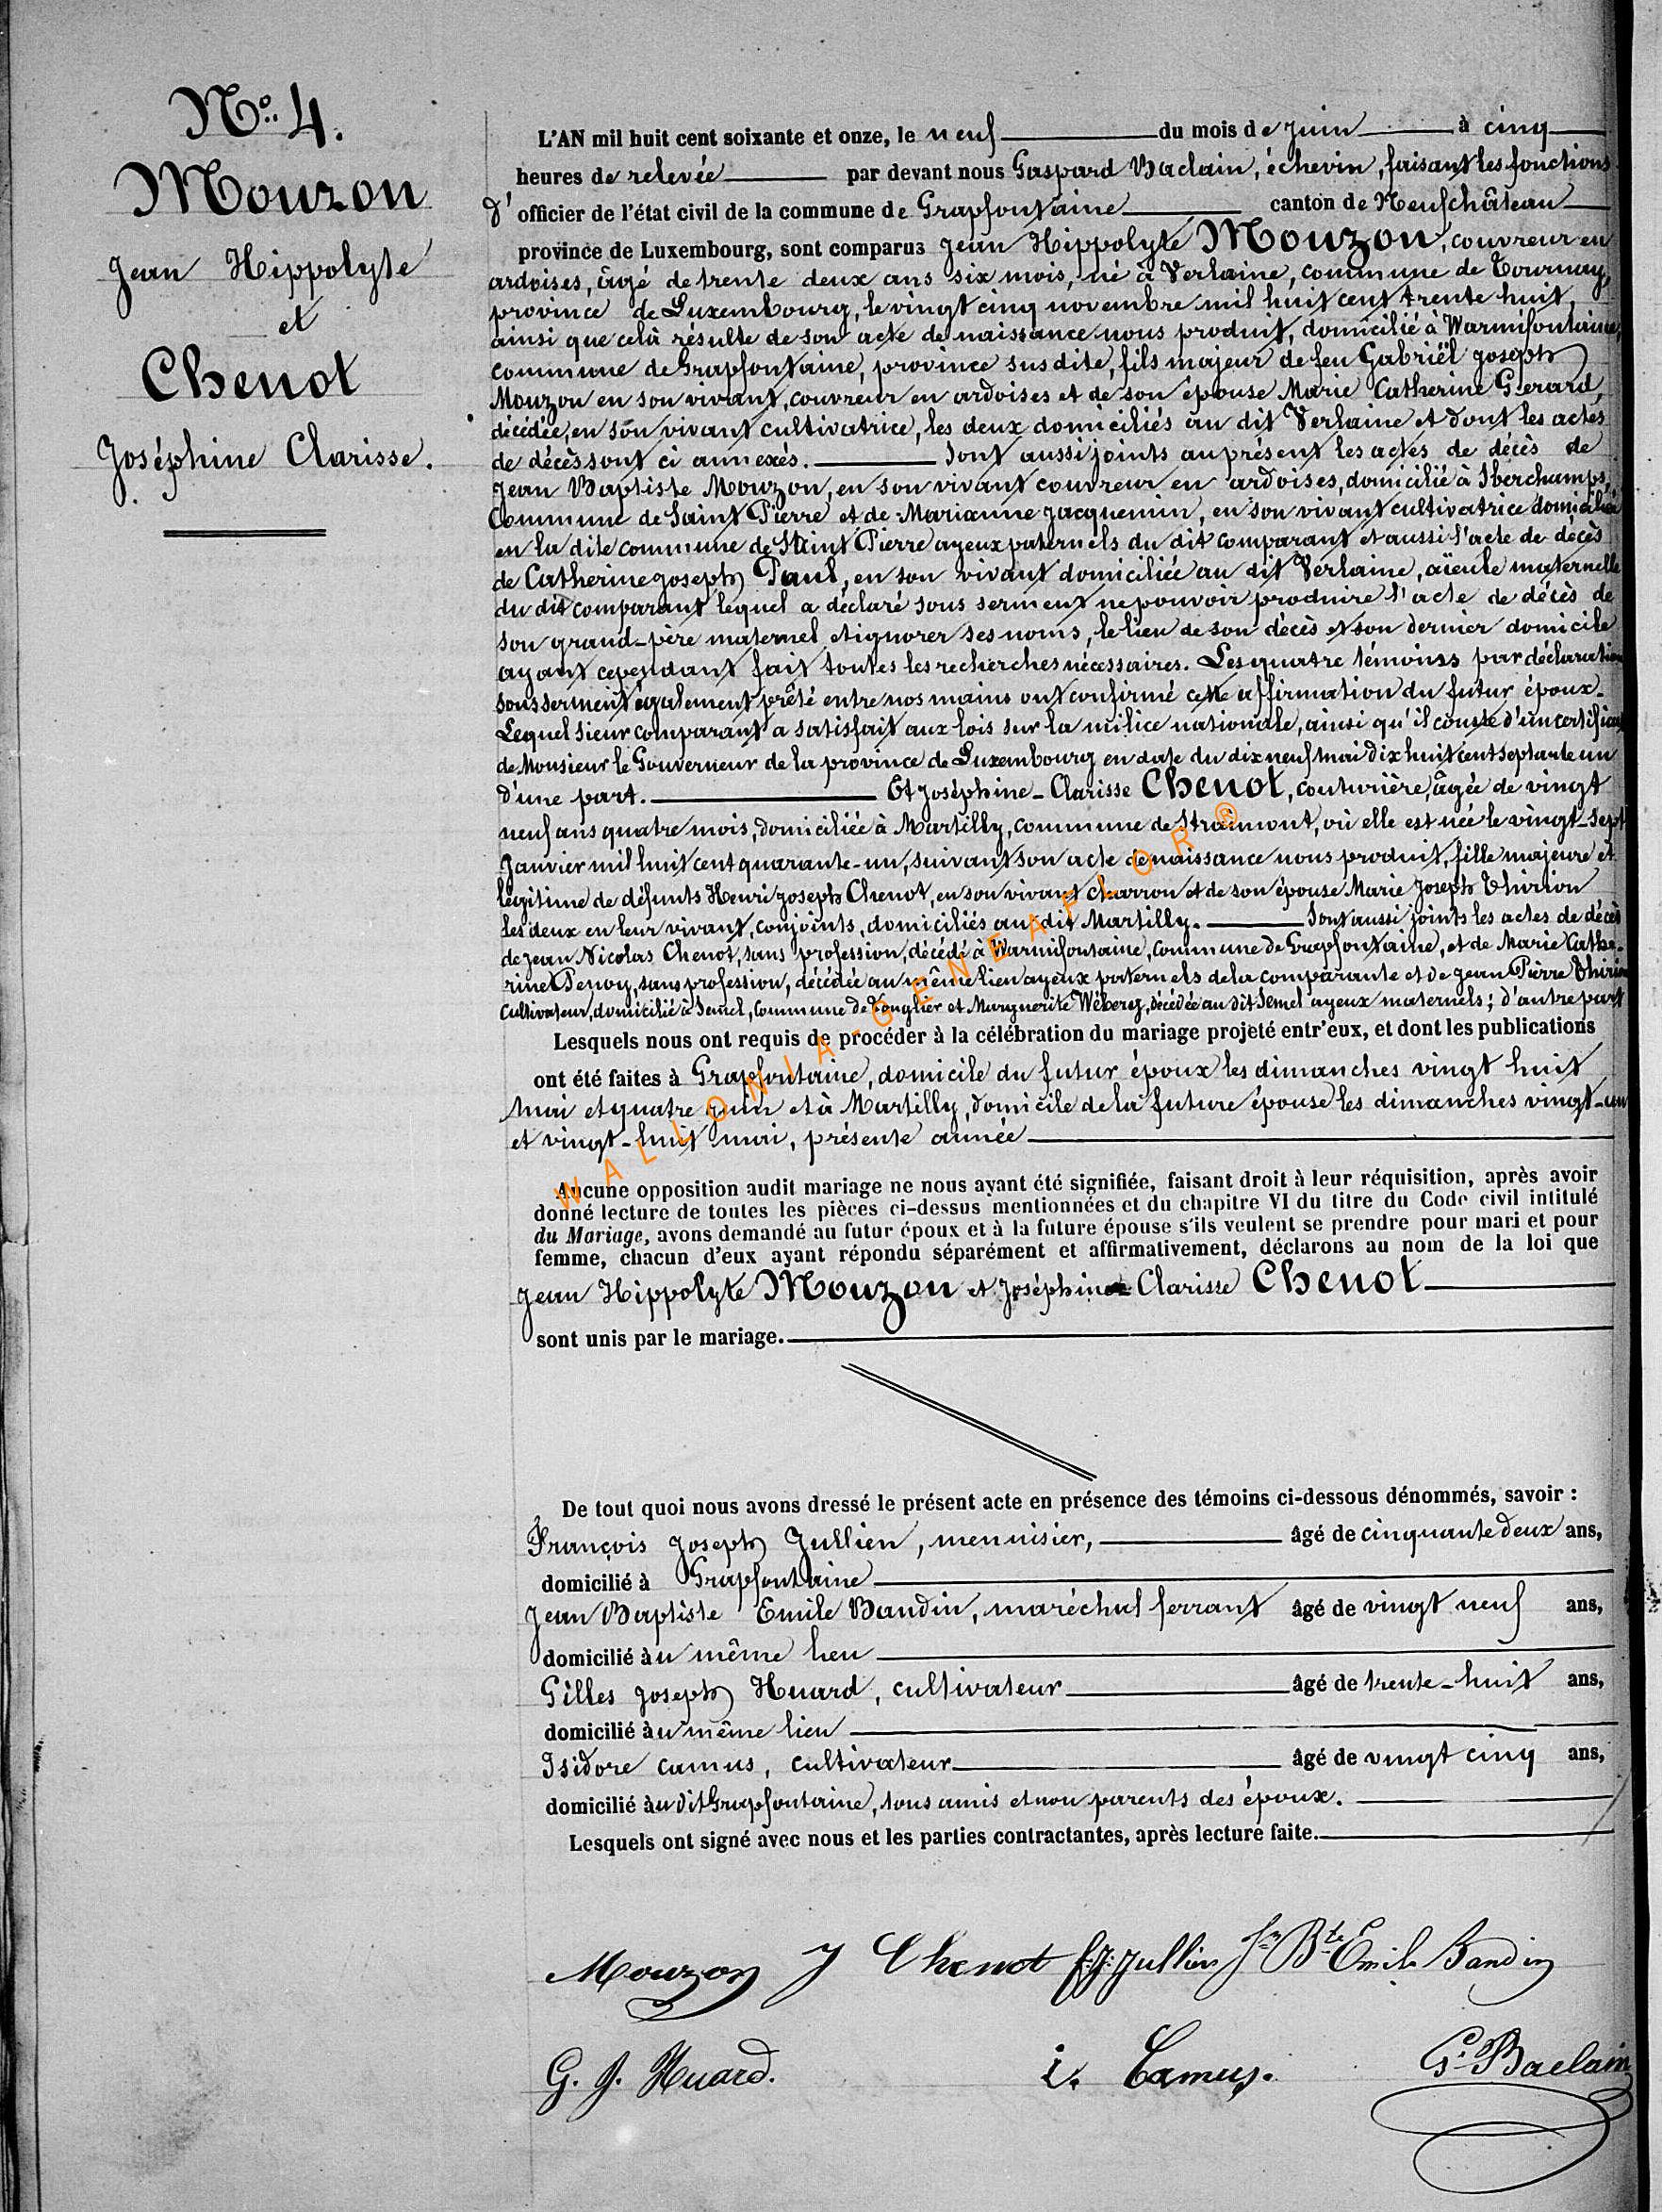 N.º 4.
Mouzon
Jean Hippolyte
et
Chenot
Joséphine Clarisse.
L'AN mil huit cent soixante et onze, le neuf du mois de Juin à cinq
heures de relevée par devant nous Gaspard Baclain, échevin, faisant les fonctions
d'officier de l'état civil de la commune de Grapfontaine canton de Neufchâteau
province de Luxembourg, sont comparus Jean Hippolyte Mouzon, couvreur en
ardoises, âgé de trente deux ans six mois, né à Verlaine, commune de Tournay,
province de Luxembourg, le vingt cinq novembre mil huit cent trente huit,
ainsi que celà résulte de son acte de naissance nous produit, domicilié à Warmifontaine,
commune de Grapfontaine, province susdite, fils majeur de feu Gabriël Joseph
Mouzon en son vivant, couvreur en ardoises et de son épouse Marie Catherine Gerard,
décédée, en son vivant cultivatrice, les deux domiciliés au dit Verlaine et dont les actes
de décès sont ci annexés. Sont aussi joints au présent les actes de décès de
Jean Baptiste Mouzon, en son vivant couvreur en ardoises, domicilié à Sberchamps,
Commune de Saint Pierre et de Marianne Jacquemin, en son vivant cultivatrice domiciliée
en la dite commune de Saint Pierre ayeux paternels du dit comparant et aussi l'acte de décès
de Catherine Joseph Paul, en son vivant domiciliée au dit Verlaine, aïeule maternelle
du dit comparant lequel a déclaré sous serment ne pouvoir produire l'acte de décès de
son grand-père maternel et ignorer ses noms, le lieu de son décès et son dernier domicile
ayant cependant fait toutes les recherches nécessaires. Les quatre témoins par déclaration
sous serment également prêté entre nos mains ont confirmé cette affirmation du futur époux.
Lequel sieur comparant a satisfait aux lois sur la milice nationale, ainsi qu'il conste d'un certificat
de Monsieur le Gouverneur de la province de Luxembourg en date du dix neuf mai dix huit cent septante un
d'une part. Et Joséphine-Clarisse Chenot, couturière, âgée de vingt
neuf ans quatre mois, domiciliée à Martilly, commune de Straimont, où elle est née le vingt-sept
Janvier mil huit cent quarante-un, suivant son acte de naissance nous produit, fille majeure et
légitime de défunts Henri Joseph Chenot, en son vivant charron et de son épouse Marie Joseph Thirion
les deux en leur vivant, conjoints, domiciliés au dit Martilly. Sont aussi joints les actes de décès
de Jean Nicolas Chenot, sans profession, décédé à Warmifontaine, commune de Grapfontaine, et de Marie Cathe-
rine Penoy, sans profession, décédée au même lieu ayeux paternels de la comparante et de Jean Pierre Thirion
Cultivateur, domicilié à Semel, commune de Longlier et Marguerite Wéberg, décédée au dit Semel ayeux maternels; d'autre part
Lesquels nous ont requis de procéder à la célébration du mariage projeté entr'eux, et dont les publications
ont été faites à Grapfontaine, domicile du futur époux les dimanches vingt huit
mai et quatre juin et à Martilly, domicile de la future épouse les dimanches vingt-un
et vingt-huit mai, présente année
Aucune opposition audit mariage ne nous ayant été signifiée, faisant droit à leur réquisition, après avoir
donné lecture de toutes les pièces ci-dessus mentionnées et du chapitre VI du titre du Code civil intitulé
du Mariage, avons demandé au futur époux et à la future épouse s'ils veulent se prendre pour mari et pour
femme, chacun d'eux ayant répondu séparément et affirmativement, déclarons au nom de la loi que
Jean Hippolyte Mouzon et Joséphine Clarisse Chenot
sont unis par le mariage.
De tout quoi nous avons dressé le présent acte en présence des témoins ci-dessous dénommés, savoir :
François Joseph Jullien, menuisier, âgé de cinquante deux ans,
domicilié à Grapfontaine
Jean Baptiste Emile Baudin, maréchal ferrant âgé de vingt neuf ans,
domicilié au même lieu
Gilles Joseph Huard, cultivateur âgé de trente-huit ans,
domicilié au même lieu
Isidore camus, cultivateur âgé de vingt cinq ans,
domicilié au dit Grapfontaine, tous amis et non parents des époux.
Lesquels ont signé avec nous et les parties contractantes, après lecture faite.
Mouzon J Chenot f. j. jullien Jn Bte Emile Baudin
G. J. Huard. i. Camus. G. Baclain
WALLONIA-GENEAFLOR ®